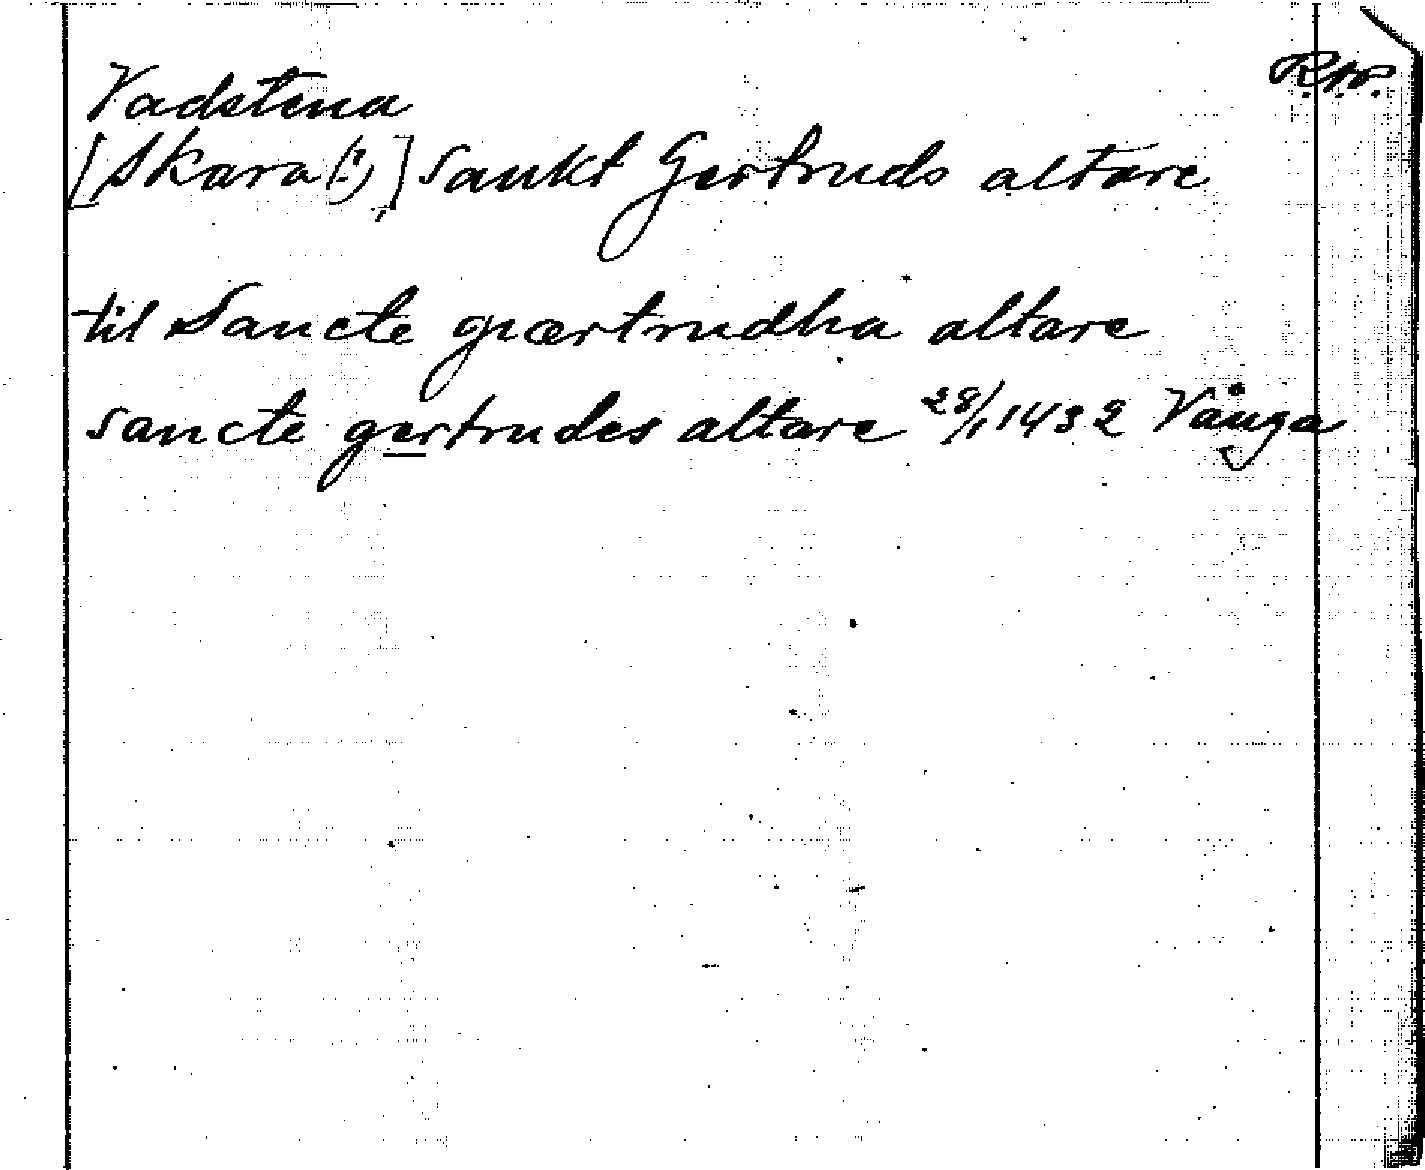 Vadstena
[Skara(!),] Sankt Gertruds altare
til Sancte giærtrudha altare
sancte gertrudes altare 28/1 1432 Vånga